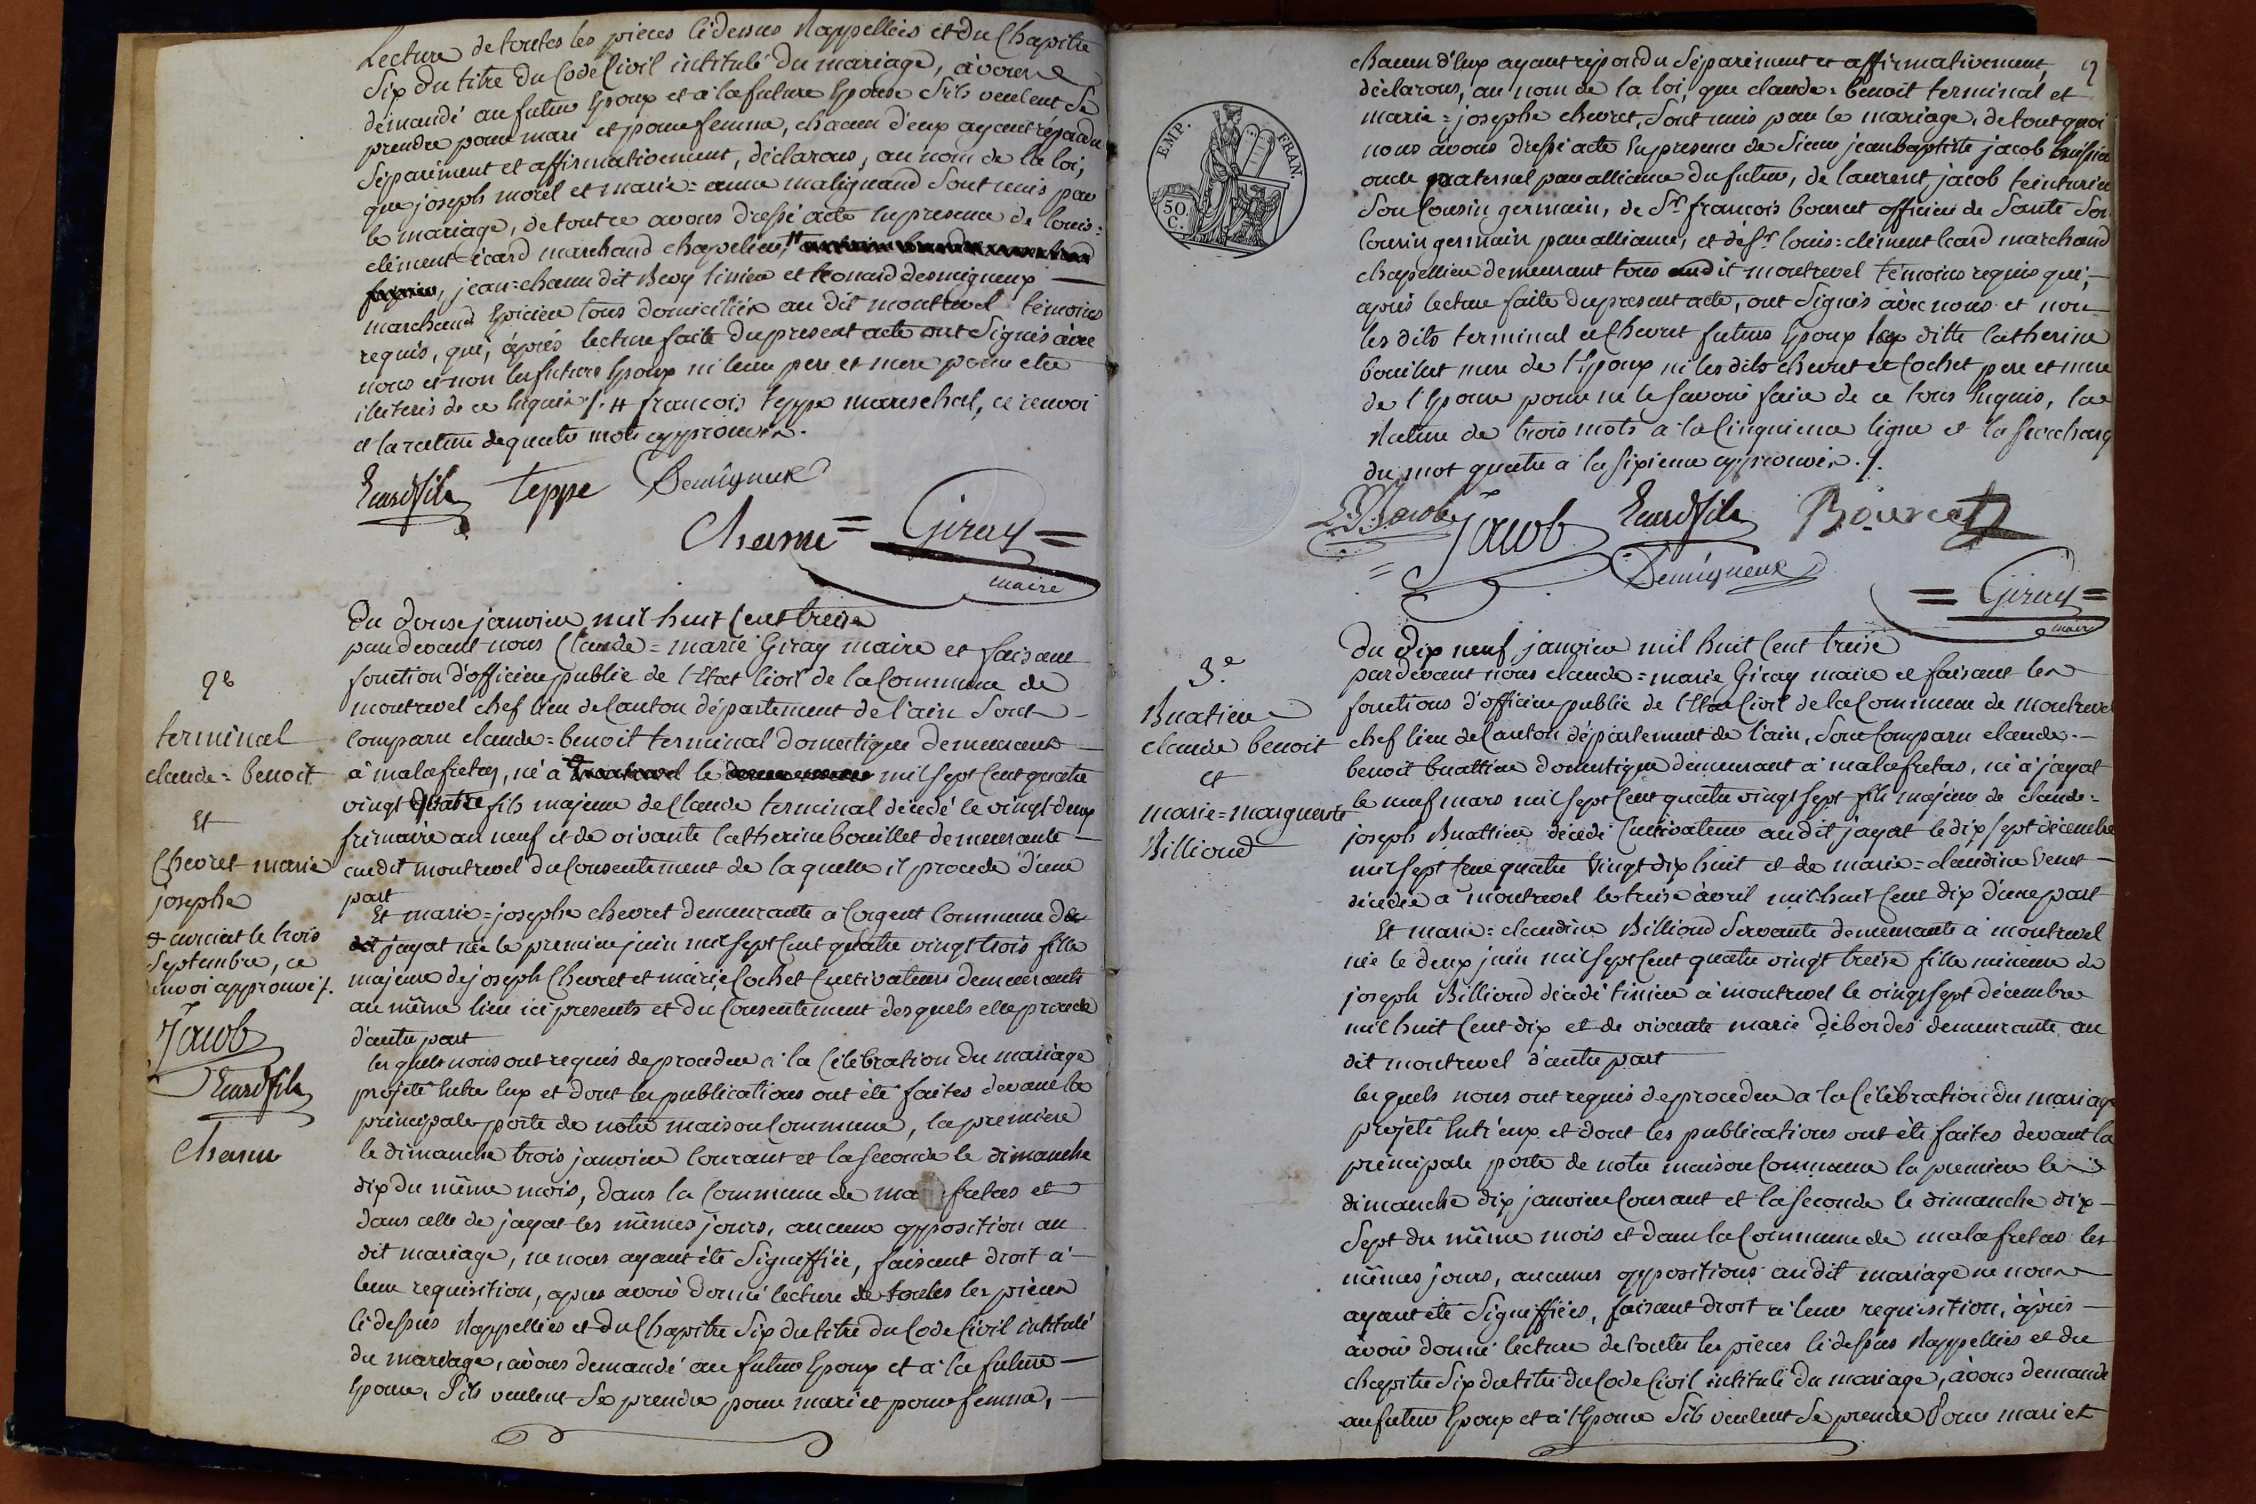 Lecture de toutes les pieces ci dessus Rappellées et du Chapitre
Six du titre du Code Civil intitulé Du mariage, avons
demandé au futur Epoux et à la future Epouse S'ils veulent Se
prendre pour mari et pour femme, chacun d'eux ayant répondu
Séparément et affirmativement, déclarons, au nom de la loi,
que joseph morel et marie=anne malignand Sont unis par
le mariage, de tout ce avons dressé acte En presence de louis=
clément Ecard marchand chapelier, #
jean=chanu dit Recy tinier et Léonard desmigneux
marchand Epicier tous domiciliés au dit montrevel témoins
requis, qui, après lecture faite du present acte ont Signés avec
nous et non les futurs Epoux ni leur pere et mere pour etre
iliterés de ce Enquis ./. # francois teppe mareschal, ce renvoi
et la rature de quatre mots approuvés.
Ecard fils teppe Demigneux
Chanu = Giray =
maire
Du Douse janvier mil huit Cent treise
par devant nous Claude=marie Giray maire et faisant
fonction d'officier public de l'Etat Civil de la Commune de
montrevel chef lieu de Canton département de l'ain Sont
Comparu claude=benoit terminal domestique demeurant
à malafretas, né à le mil Sept Cent quatre
vingt quatre fils majeur de Claude terminal décédé le vingt deux
frimaire an neuf et de vivante Catherine bouillet demeurante
audit montrevel du Consentement de la quelle il procede d'une
part
Et marie=josephe chevret demeurante à Corgent Commune de
jayat née le premier juin mil Sept Cent quatre vingt trois fille
majeure de joseph Chevret et marie Cochet Cultivateurs demeurants
au même lieu ici presents et du Consentement des quels elle procede
d'autre part
les quels nous ont requis de proceder à la Célébration du mariage
projeté Entre Eux et dont les publications ont été faites devant la
principale porte de notre maison Commune, la premiere
le dimanche trois janvier Courant et la Seconde le dimanche
dix du même mois, dans la Commune de mafretas et
dans celle de jayat les mêmes jours, aucune opposition au
dit mariage, ne nous ayant été Signiffiée, faisant droit à
leur requisition, après avoir donné lecture de toutes les pièces
ci dessus Rappellées et du Chapitre Six du titre du Code Civil intitulé
du mariage, avons demandé au futur Epoux et à la future
Epouse, S'ils veulent Se prendre pour mari et pour femme,
2e
terminal
claude=benoit
Et
Chevret marie
josephe
# le trois
Septembre, ce
renvoi approuvé ./.
Jacob
Ecard fils
Chanu
2
EMP. FRAN.
50 C.
chacun d'Eux ayant répondu Séparément et affirmativement,
déclarons, au nom de la loi, que claude=benoit terminal et
marie=josephe chevret, Sont unis par le mariage, de tout quoi
nous avons dressé acte En presence de Sieur jean baptiste jacob
oncle paternel par alliance du futur, de laurent jacob teinturier
Son Cousin germain, de Sr francois bourcet officier de Santé Son
Cousin germain par alliance, et de Sr louis=clément Ecard marchand
chapellier demeurant tous audit montrevel témoins requis qui,
après lecture faite du present acte, ont Signés avec nous et non
les dits terminal et Chevret futurs Epoux ditte Catherine
bouillet mere de l'Epoux ni les dits chevret et Cochet pere et mere
de l'Epouse pour ne le Savoir faire de ce tous Enquis, la
Rature de trois mots a la Cinquieme ligne et la Surcharge
du mot quatre a la Sixieme approuvés ./.
Jacob Jacob Ecard fils Bourcet
Demigneux
= Giray =
maire
Du Dix neuf janvier mil huit Cent treise
par devant nous claude=marie Giray maire et faisant les
fonctions d'officier public de l'Etat Civil de la Commune de montrevel
chef lieu de Canton département de l'ain, Sont Comparu claude=
benoit buattier domestique demeurant à malafretas, né à jayat
le neuf mars mil Sept Cent quatre vingt Sept fils majeur de claude=
joseph Buattier décédé Cultivateur audit jayat le dix Sept décembre
mil Sept Cent quatre Vingt dix huit et de marie=claudine Venet
décédée à montrevel le treise avril mil huit Cent dix d'une part
Et marie=claudine Billioud Servante demeurante à montrevel
née le deux juin mil Sept Cent quatre vingt treise fille mineure de
joseph Billioud décédé tinier à montrevel le vingt Sept décembre
mil huit Cent dix et de vivante marie débordes demeurante au
dit montrevel d'autre part
les quels nous ont requis de proceder a la Célébration du mariage
projeté Entr'eux et dont les publications ont été faites devant la
principale porte de notre maison Commune la premiere le
dimanche dix janvier Courant et la Seconde le dimanche dix
Sept du même mois et dans la Commune de malafretas les
mêmes jours, aucunes oppositions audit mariage ne nous
ayant été Signiffiées, faisant droit à leur requisition, après
avoir donné lecture de toutes les pieces ci dessus Rappellées et du
chapitre Six du titre du Code Civil intitulé Du mariage, avons demandé
au futur Epoux et à l'Epouse S'ils veulent Se prendre Pour mari et
3e
Buatier
claude benoit
et
marie=marguerite
Billioud